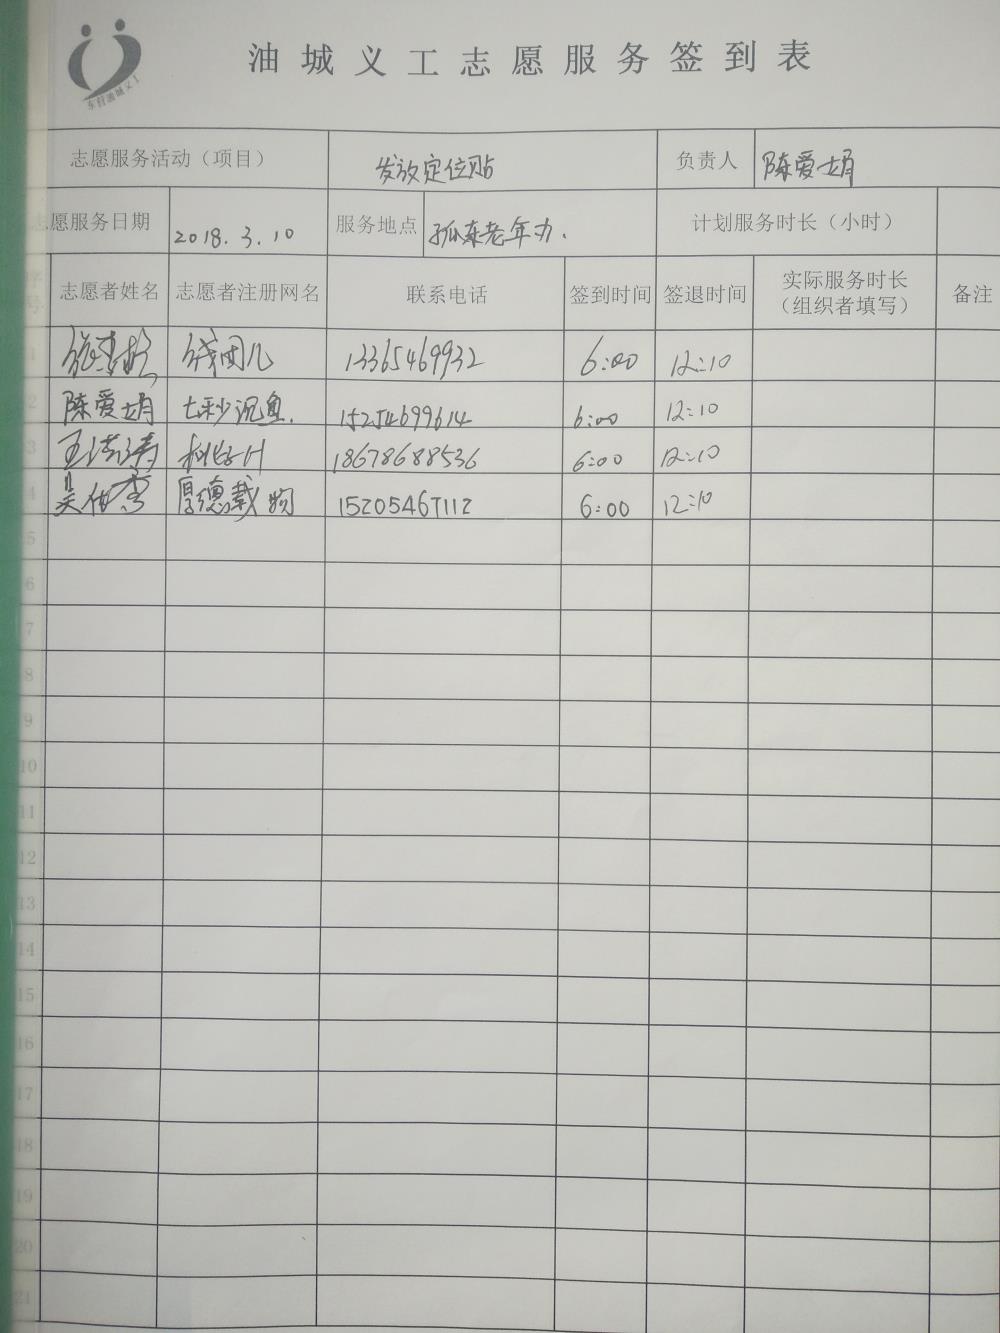 东营油城义工
油城义工志愿服务签到表
志愿服务活动（项目） 发放定位贴 负责人 陈爱娟
志愿服务日期 2018.3.10 服务地点 孤东老年办. 计划服务时长（小时）
序号 志愿者姓名 志愿者注册网名 联系电话 签到时间 签退时间 实际服务时长（组织者填写） 备注
1 13365469932 6:00 12:10
2 陈爱娟 七秒沉鱼. 15254699614 6:00 12:10
3 18678688536 6:00 12:10
4 厚德载物 15205467112 6:00 12:10
5
6
7
8
9
10
11
12
13
14
15
16
17
18
19
20
21